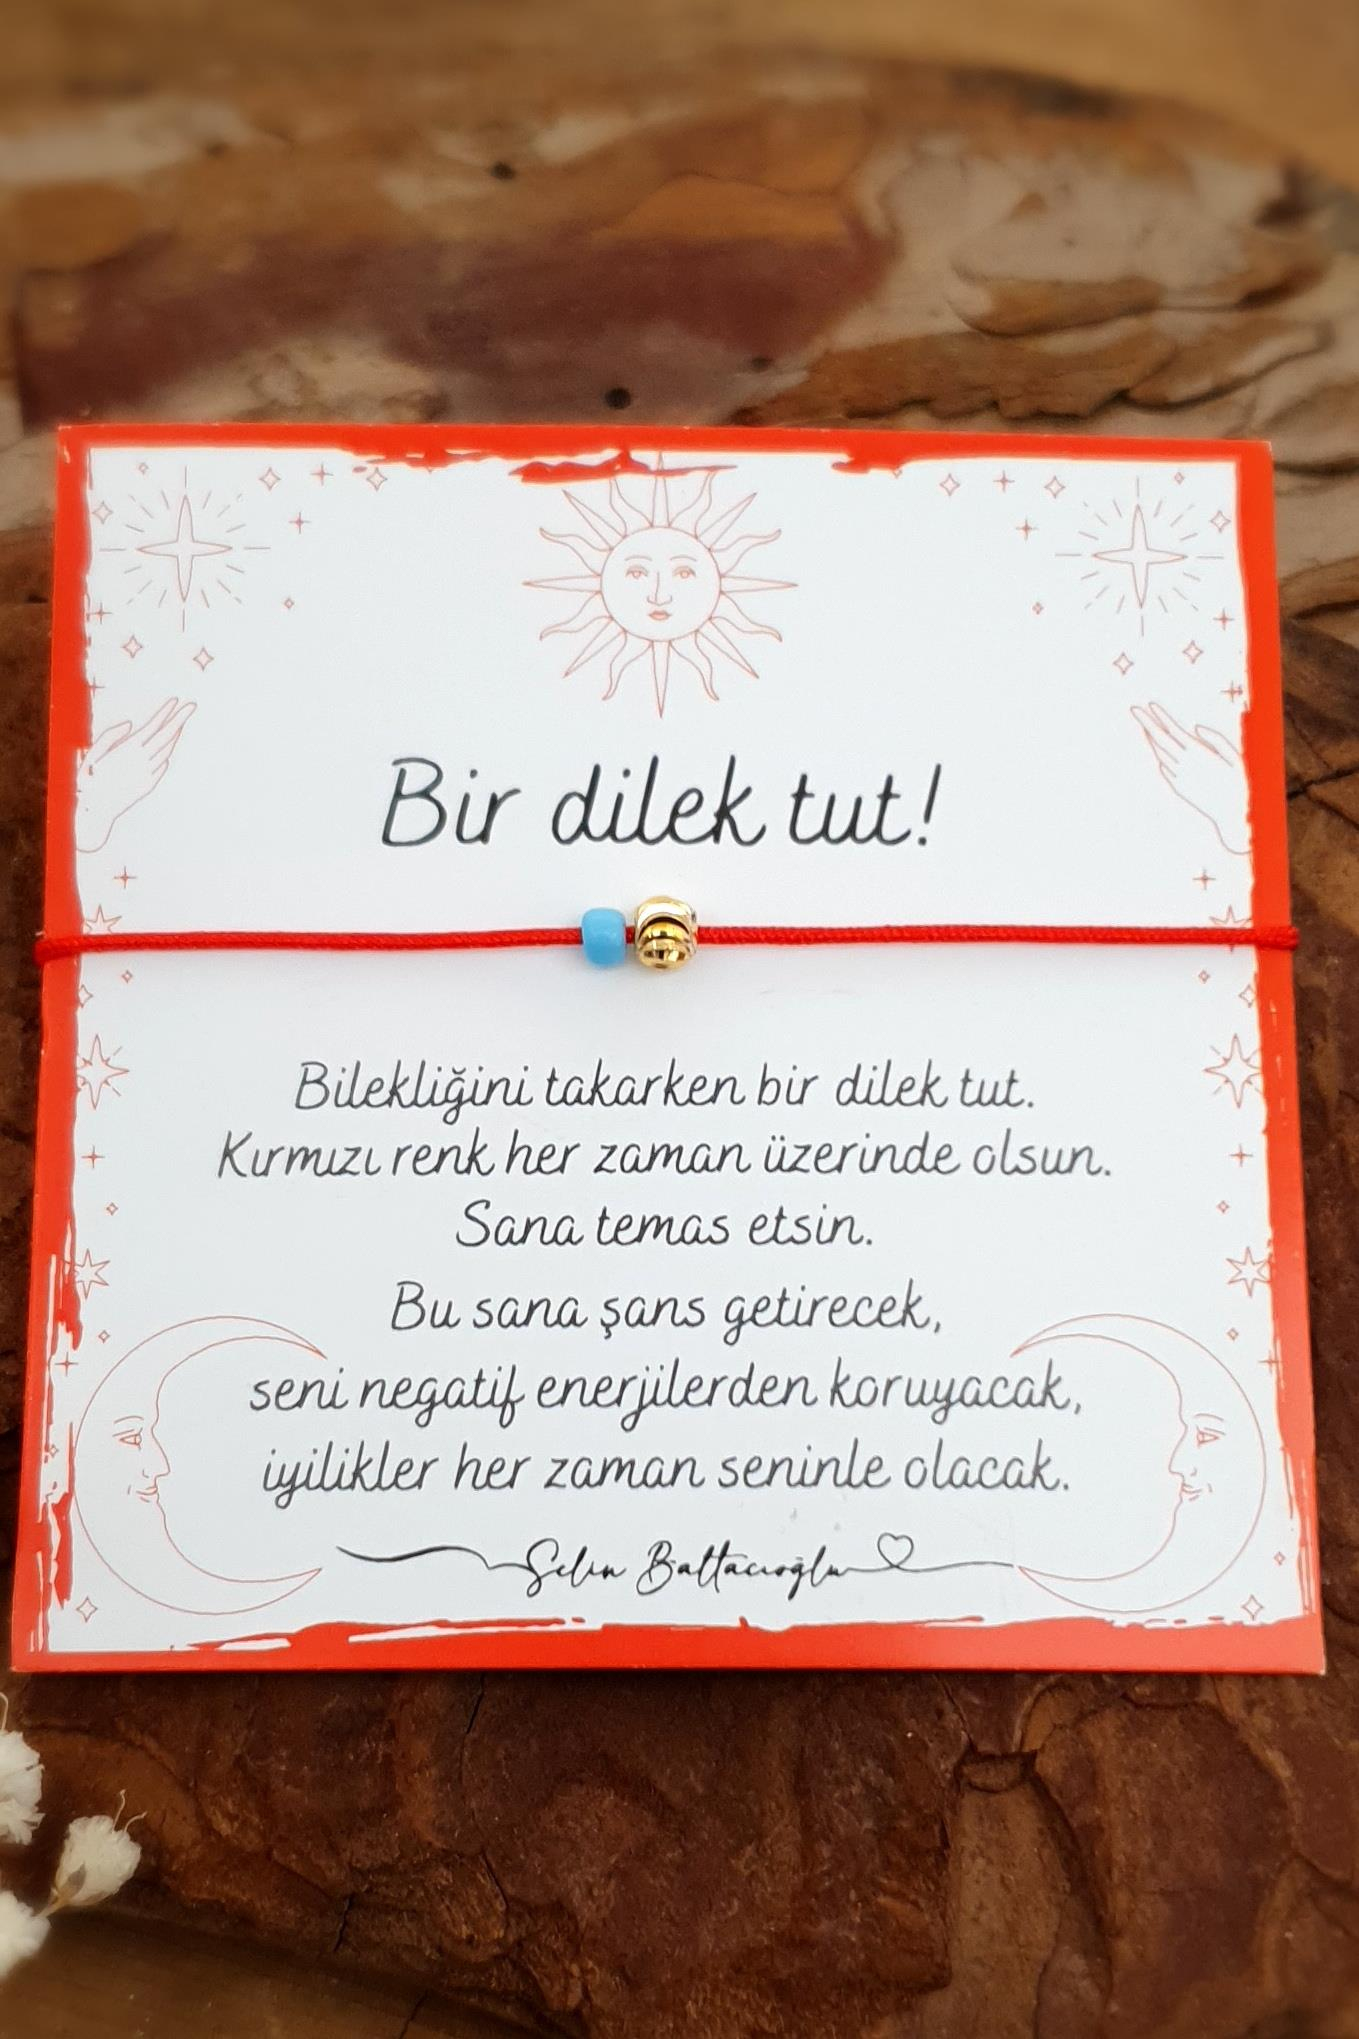 Bir dilek tut!
Bilekliğini takarken bir dilek tut.
Kırmızı renk her zaman üzerinde olsun.
Sana temas etsin.
Bu sana şans getirecek,
seni negatif enerjilerden koruyacak,
iyilikler her zaman seninle olacak.
Selin Baltacıoğlu